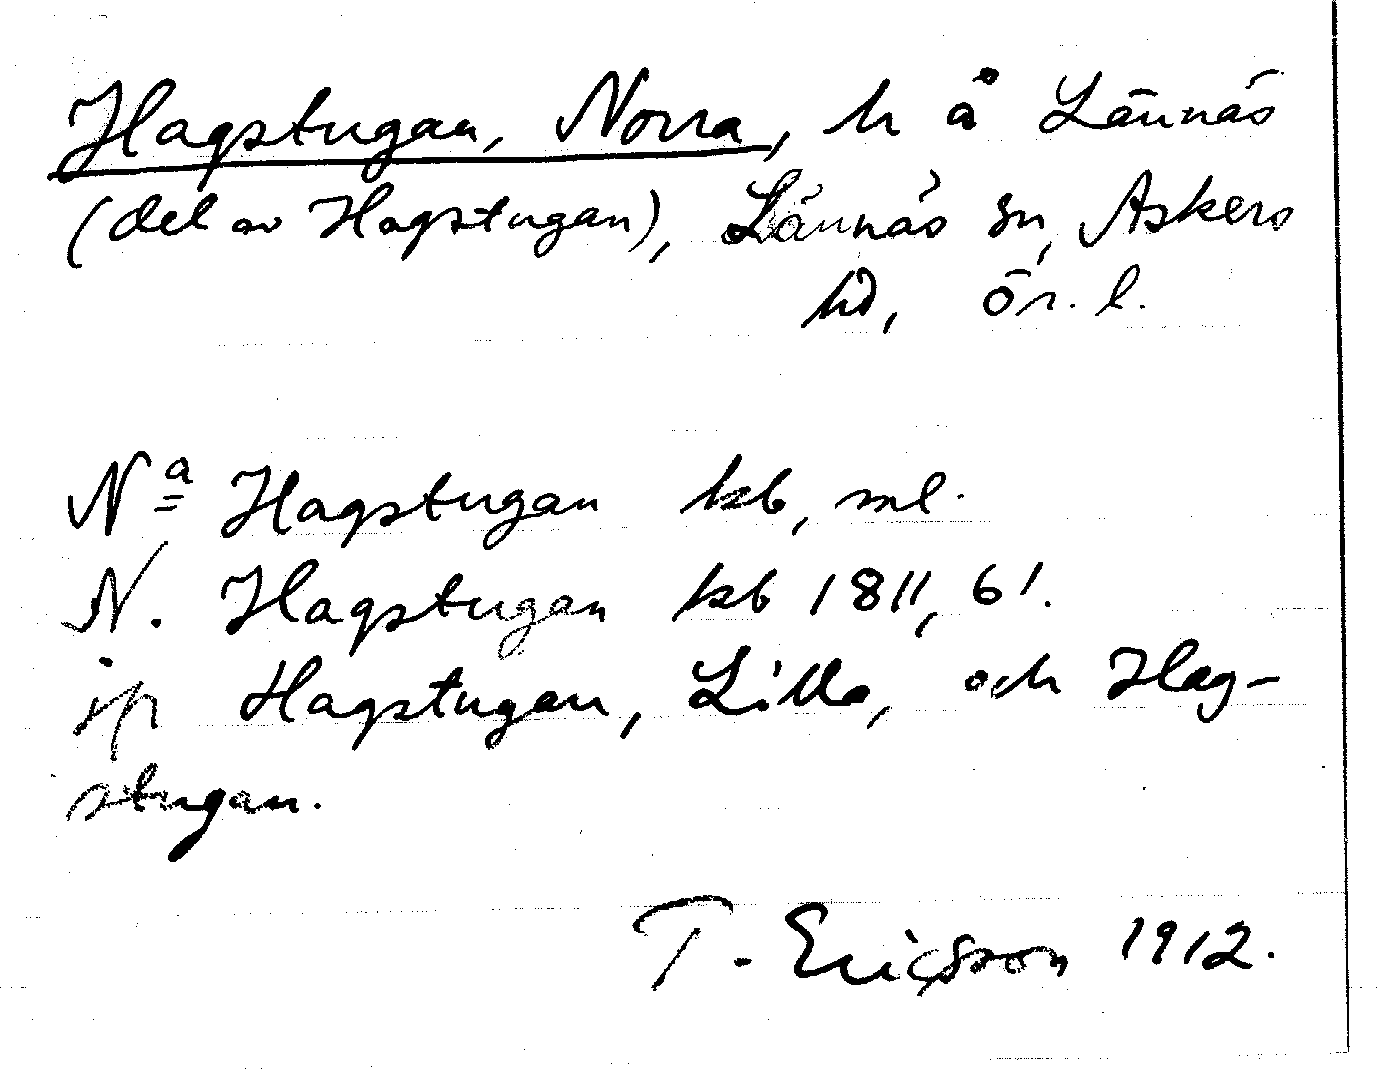 Hagstugan, Norra, h å Lännäs
(del av Hagstugan), Lännäs sn, Askers
hd, Ör. l.
Nᵃ Hagstugan kb, ml.
N. Hagstugan kb 1811, 61.
jfr Hagstugan, Lilla, och Hag-
stugan.
T. Ericsson 1912.